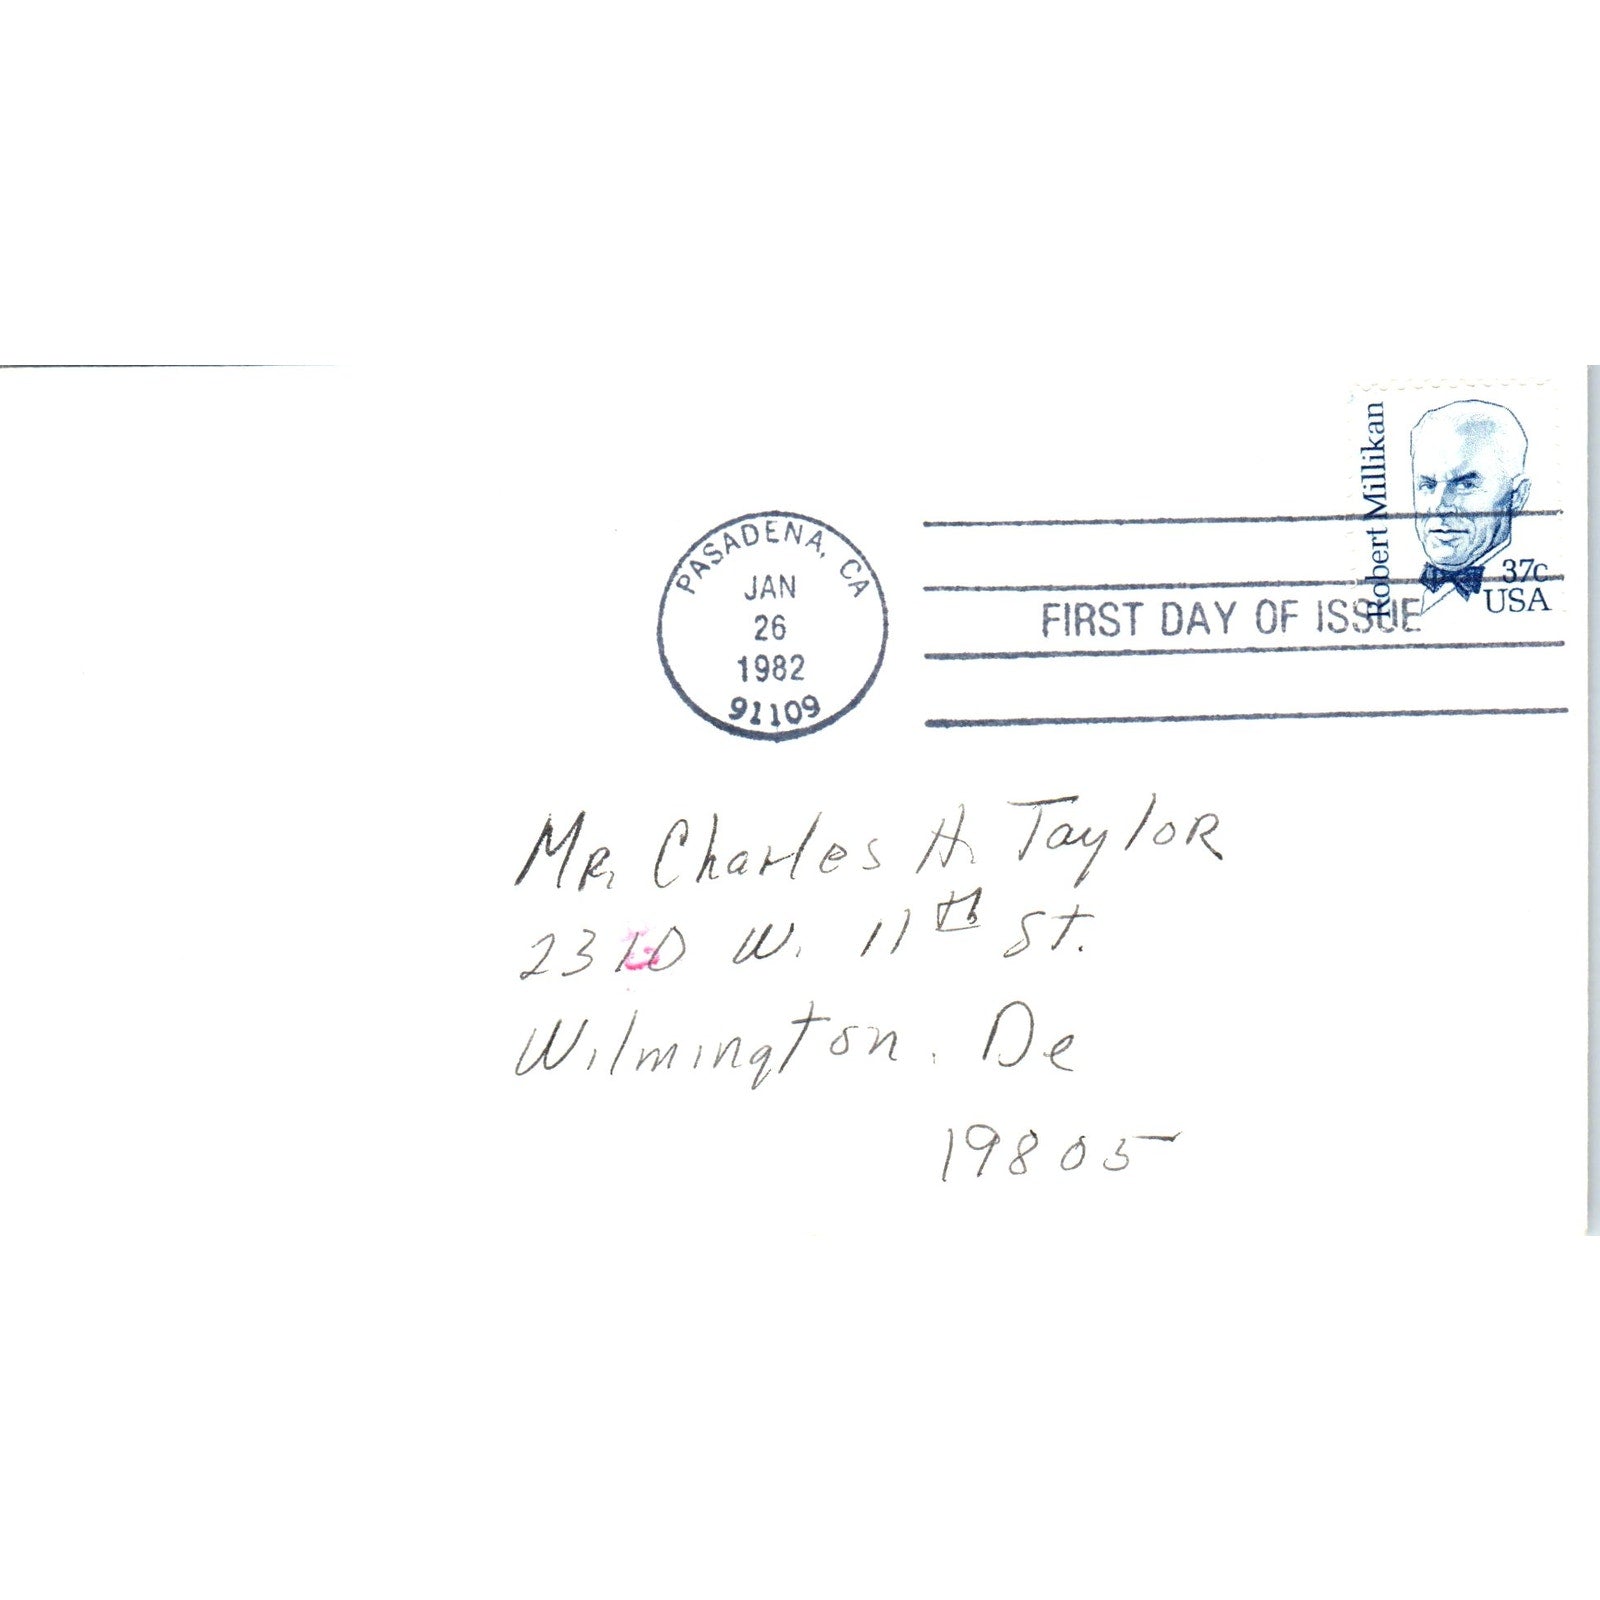 Robert Millikan
37c
USA
PASADENA, CA
JAN
26
1982
91109
FIRST DAY OF ISSUE
Mr. Charles H. Taylor
2310 W. 11th St.
Wilmington. De
19805